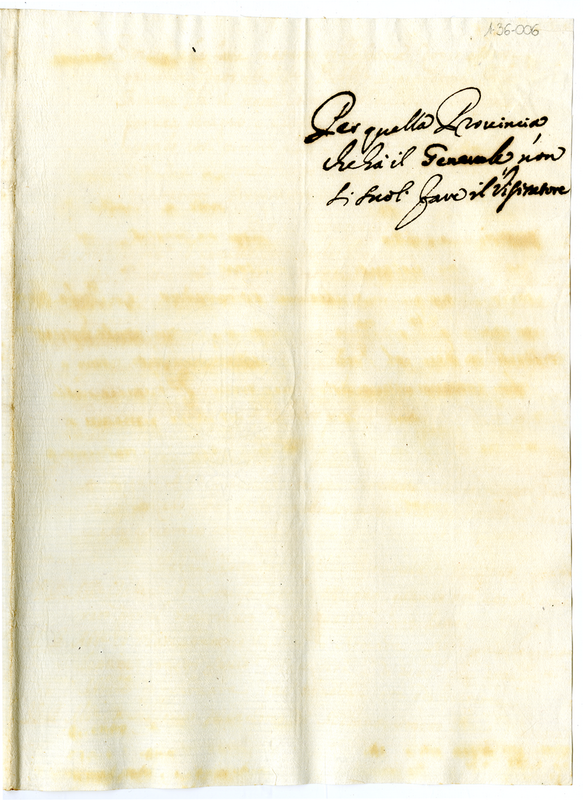 1-36-006
Per quella Provincia
che hà il Generale non
si suol fare il Visitatore